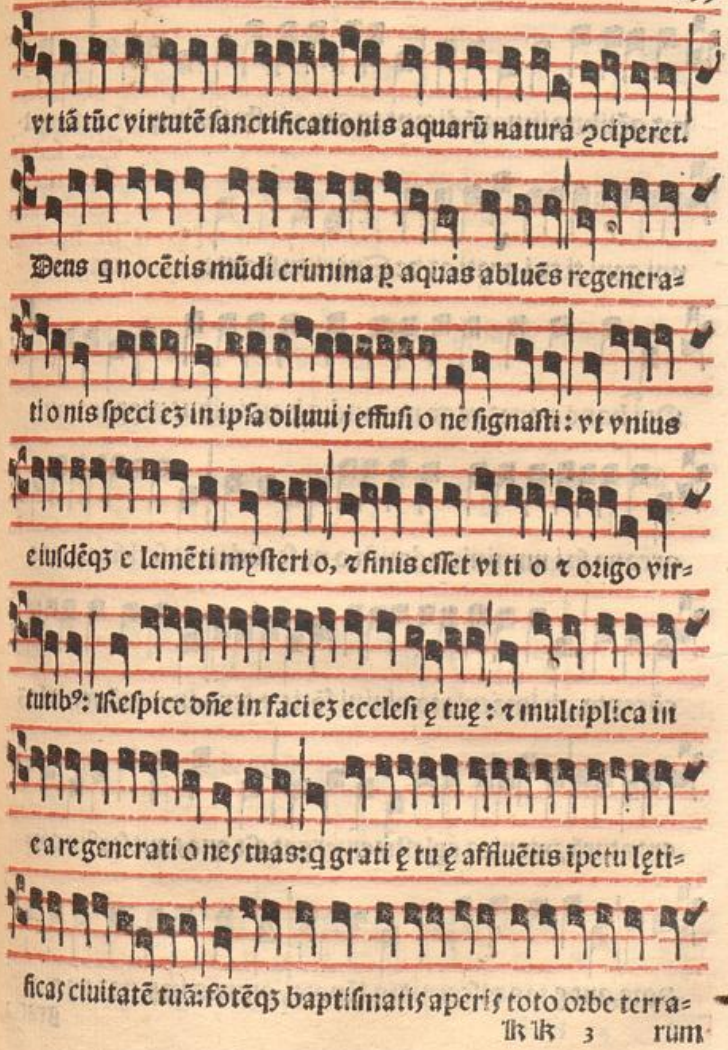 vt iā tūc virtutē sanctificationis aquarū natura ꝯciperet.
Deus q nocētis mūdi crimina ꝑ aquas abluēs regenera=
ti o nis speci eꝫ in ipsa diluui j effusi o ne signasti: vt vnius
e iusdēqꝫ e lemēti mysteri o, ⁊ finis esset vi ti o ⁊ origo vir=
tutibꝰ: Respice dn̄e in faci eꝫ ecclesi ę tuę: ⁊ multiplica in
e a re generati o nes tuas: q grati ę tu ę affluētis īpetu lęti=
ficas ciuitatē tuā: fōtēqꝫ baptismatis aperis toto orbe terra=
kk 3 rum